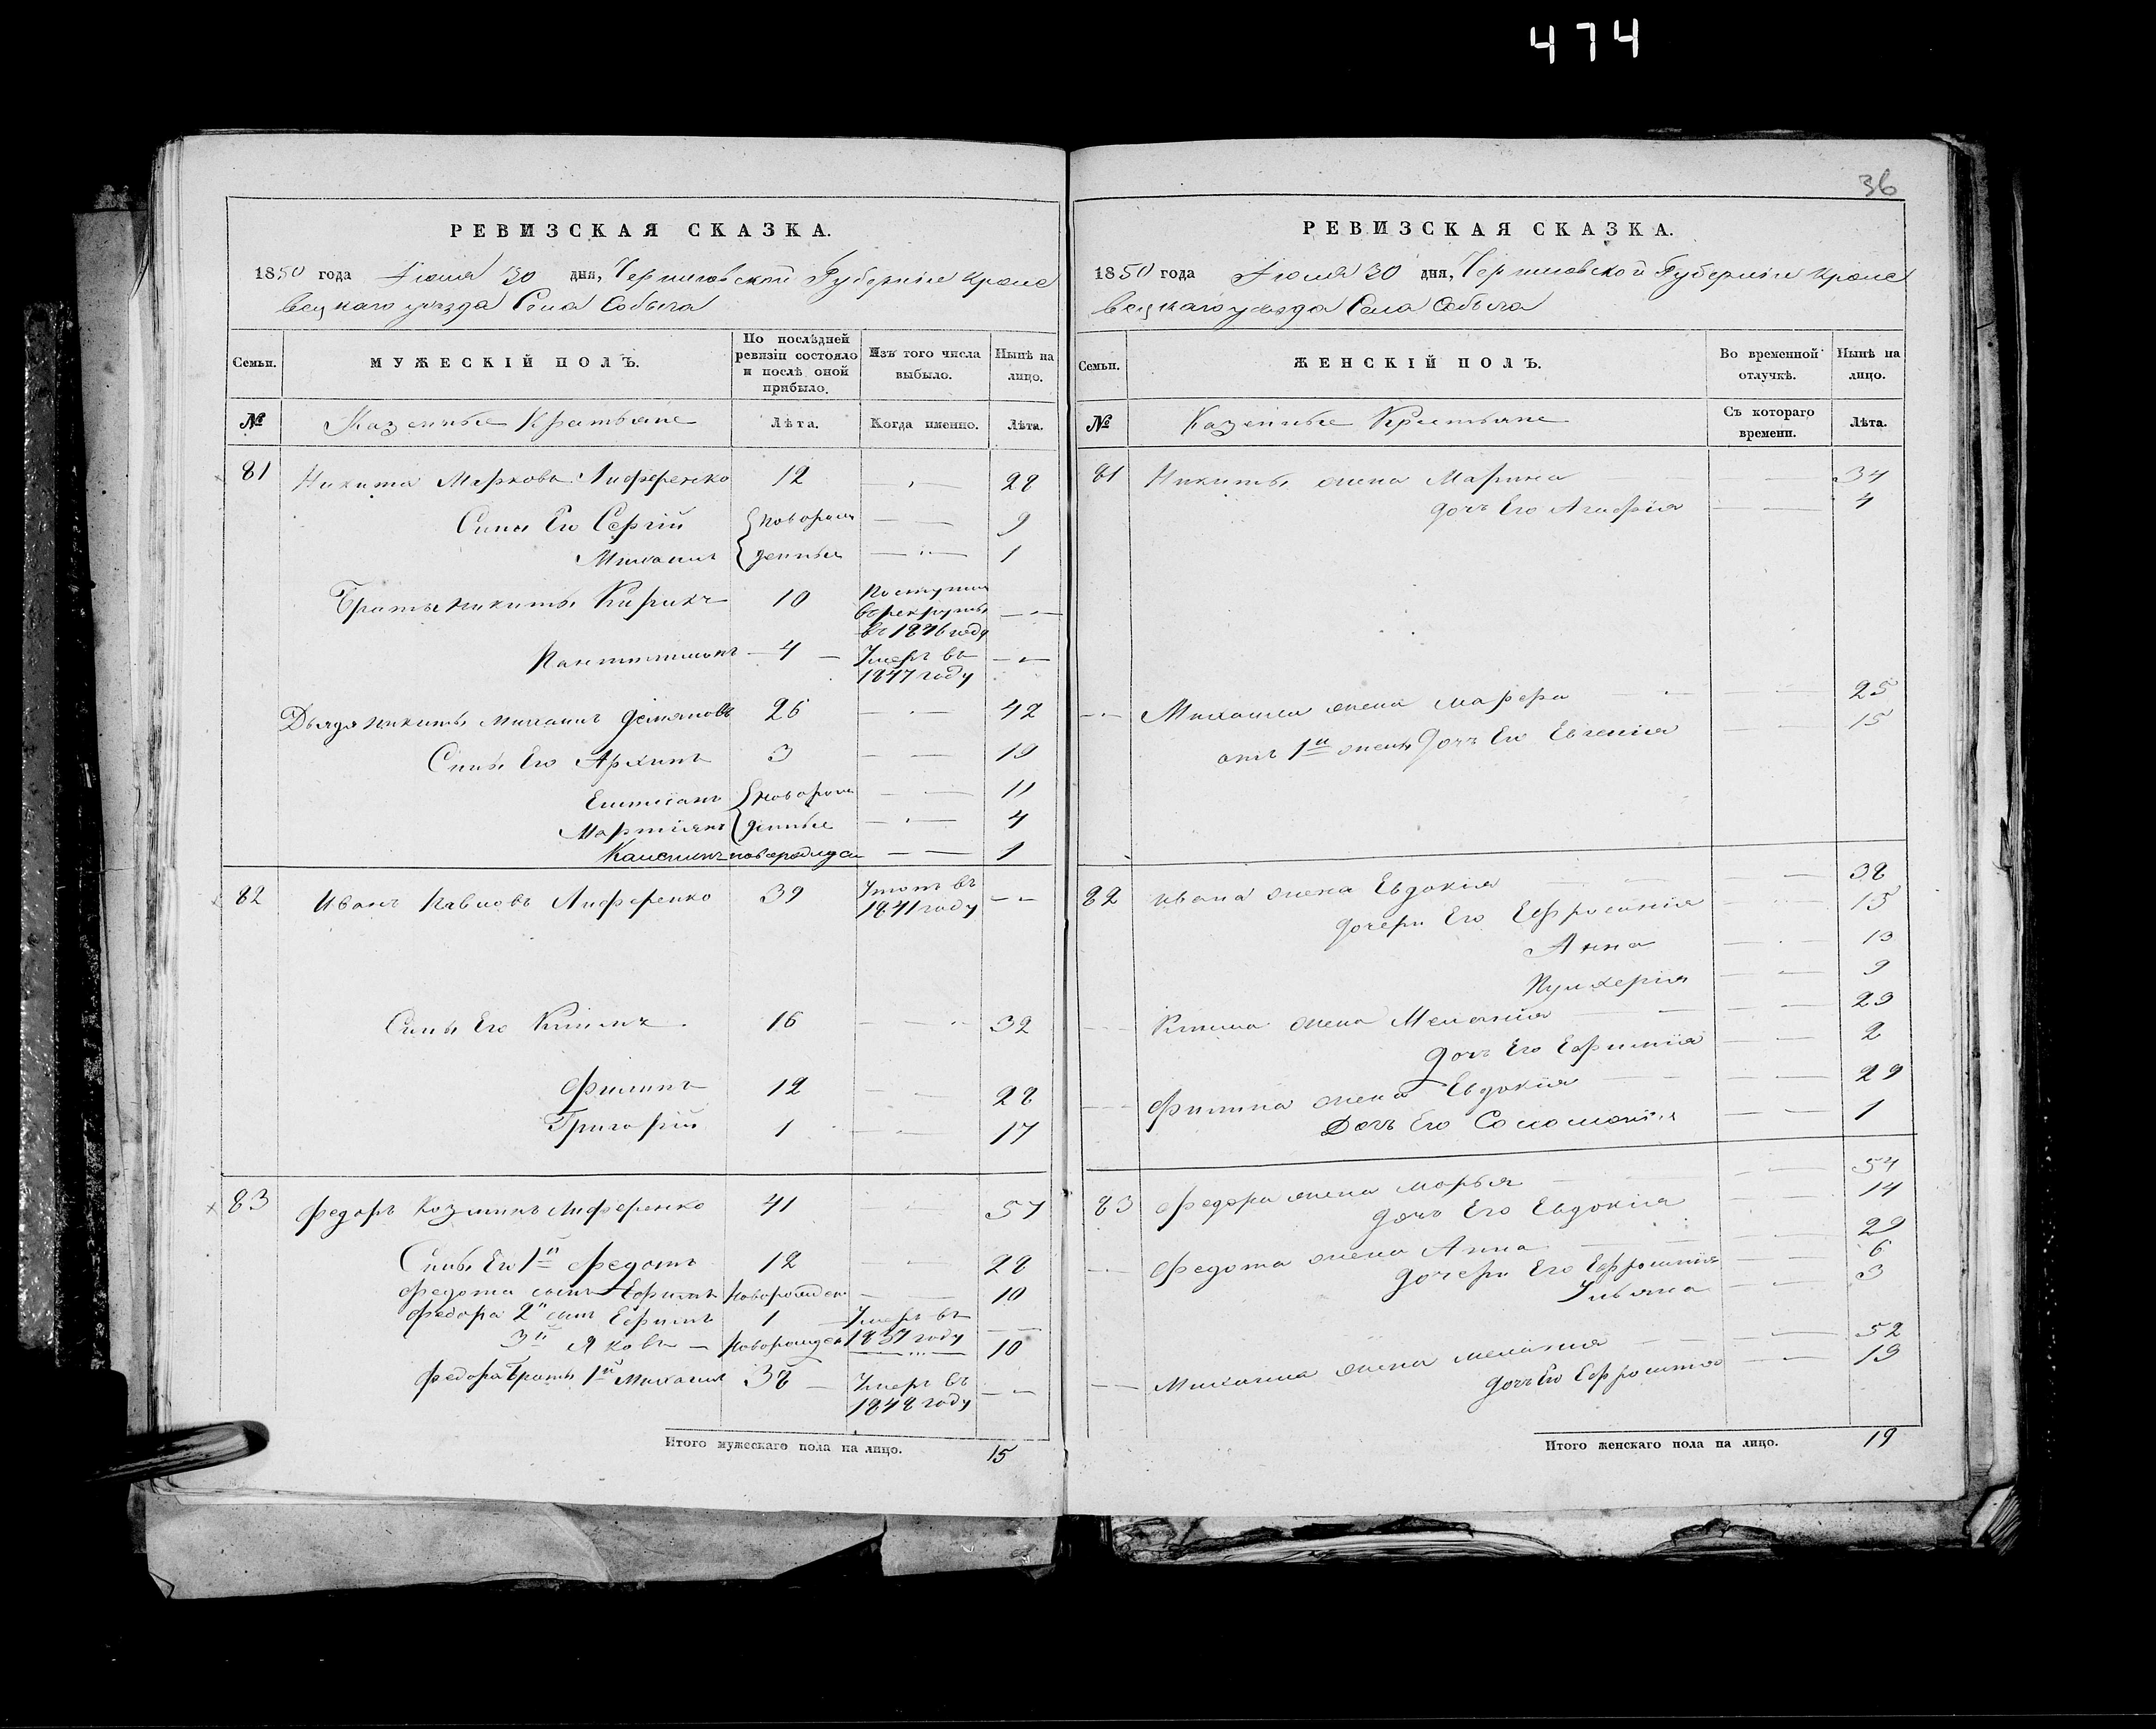 474
36
РЕВИЗСКАЯ СКАЗКА.
1850 года Іюля 30 дня, Черниговской Губерніи Кроле
вецкаго уезда Села Собыча
Семьи. МУЖЕСКІЙ ПОЛЪ. По послѣдней ревизіи состояло и послѣ оной прибыло. Изъ того числа выбыло. Нынѣ на лицо.
№ Казенные Крестьяне Лѣта. Когда именно. Лѣта.
81 Никита Марковъ Лиференко 12 28
Сины Его Сергій {новорож 9
Михаилъ {денные 1
Братья Никиты Кирикъ 10 Поступил в рекруты въ 1846 году
4 Умеръ въ 1847 году
Дядя Никиты Михаилъ Демяновъ 26 42
Сины Его Архипъ 3 19
Емтіянъ {новорож 11
Мартіянъ {денные 4
1
82 Иванъ Павловъ Лиференко 39 Умеръ въ 1841 году
Сины Его 16 32
Филипъ 12 28
Григорій 1 17
83 Федоръ Козминъ Лиференко 41 57
Сины Его 1й Федотъ 12 28
Федота сынъ Ефимъ Новорожден 10
Федора 2й сынъ Ефимъ 1 Умеръ въ 1837 году
3й Яковъ Новорожден 10
Федора Братъ 1й Михаилъ 38 Умеръ въ 1848 году
Итого мужескаго пола на лицо. 15
РЕВИЗСКАЯ СКАЗКА.
1850 года Іюля 30 дня, Черниговской Губерніи Кроле
вецкаго уезда Села Собыча
Семьи. ЖЕНСКІЙ ПОЛЪ. Во временной отлучкѣ. Нынѣ на лицо.
№ Казенные Крестьяне Съ котораго времени. Лѣта.
81 Никиты жена Марина 34
дочъ Его Агафія 4
Михаила жена Марфа 25
отъ 1й жены дочъ Его Евгенія 15
82 Ивана жена Евдокія 38
дочери Его Ефросинія 15
Анна 13
Пулхерія 9
жена Меланія 29
дочъ Его Ефимія 2
Филипа жена Евдокія 29
Дочъ Его Соломонія 1
83 Федора жена Марья 54
дочъ Его Евдокія 14
Федота жена Анна 29
дочери Его Ефросинія 6
Ульяна 3
Михаила жена Меланія 52
дочъ Его Ефросинія 19
Итого женскаго пола на лицо. 19